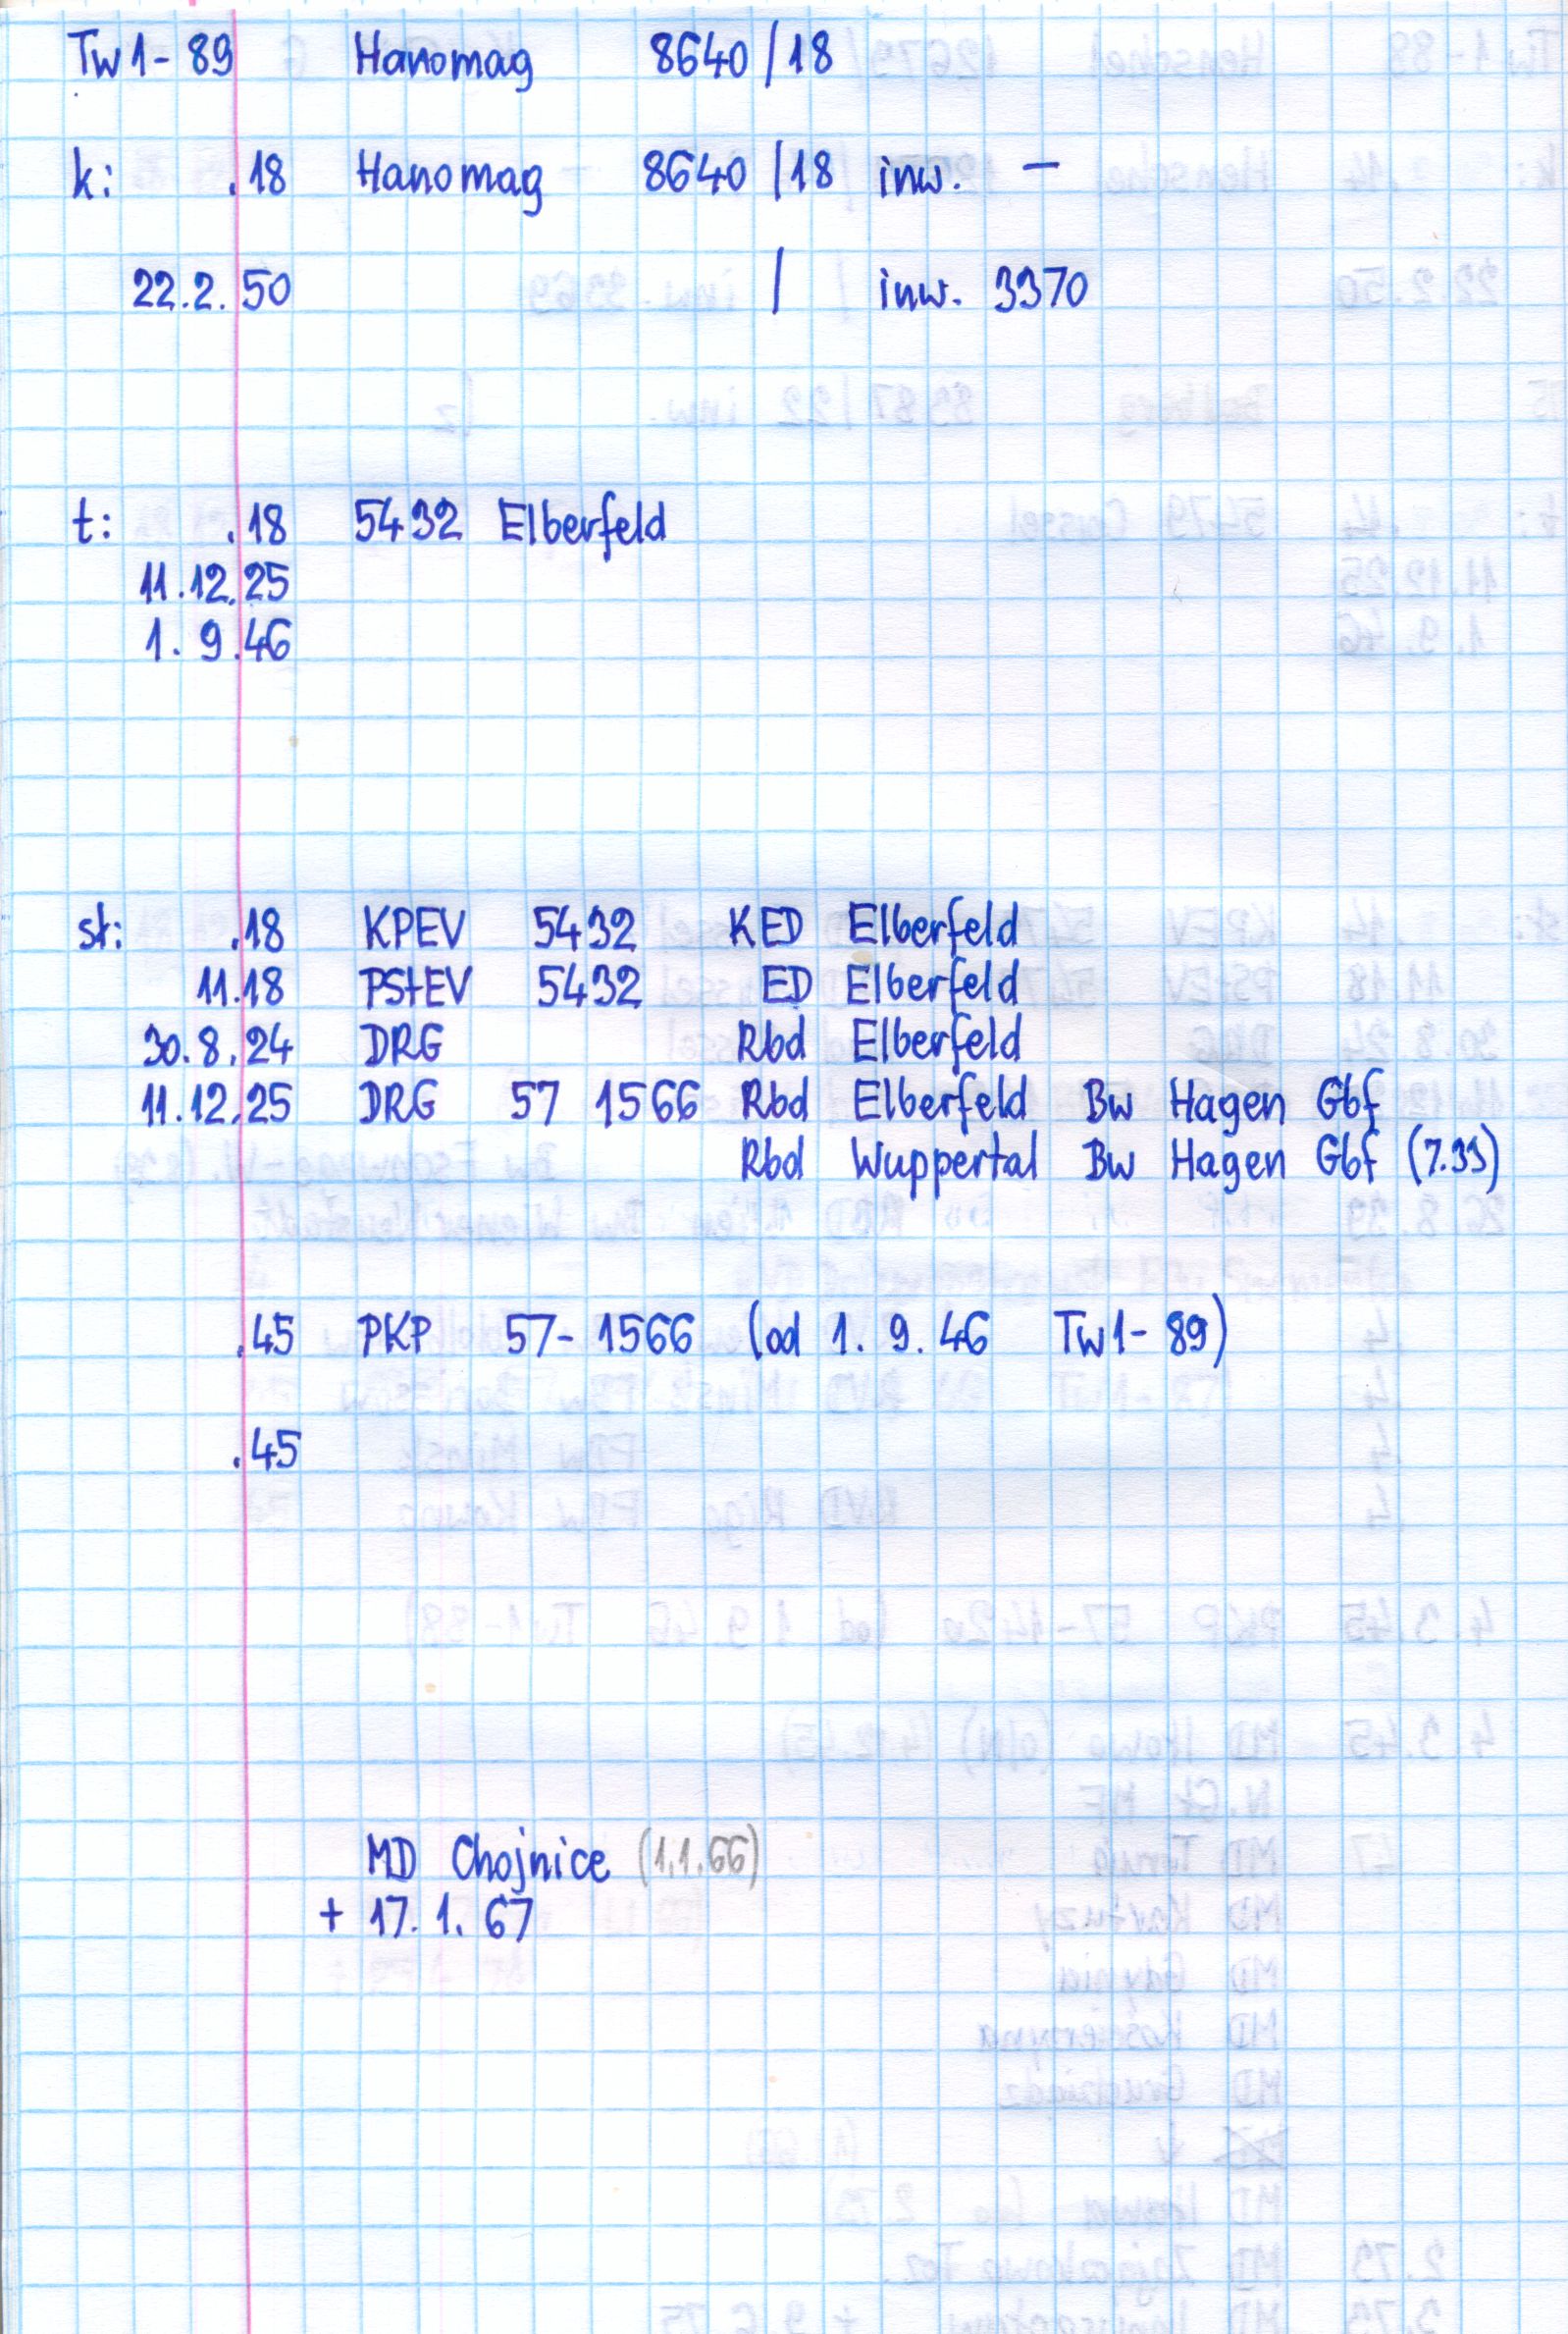 Tw1-89 Hanomag 8640/18
k: .18 Hanomag 8640/18 inw. —
22.2.50 / inw. 3370
t: .18 5432 Elberfeld
11.12.25
1.9.46
st: .18 KPEV 5432 KED Elberfeld
11.18 PStEV 5432 ED Elberfeld
30.8.24 DRG Rbd Elberfeld
11.12.25 DRG 57 1566 Rbd Elberfeld Bw Hagen Gbf
Rbd Wuppertal Bw Hagen Gbf (7.33)
.45 PKP 57-1566 (od 1.9.46 Tw1-89)
.45
MD Chojnice (1.1.66)
+ 17.1.67